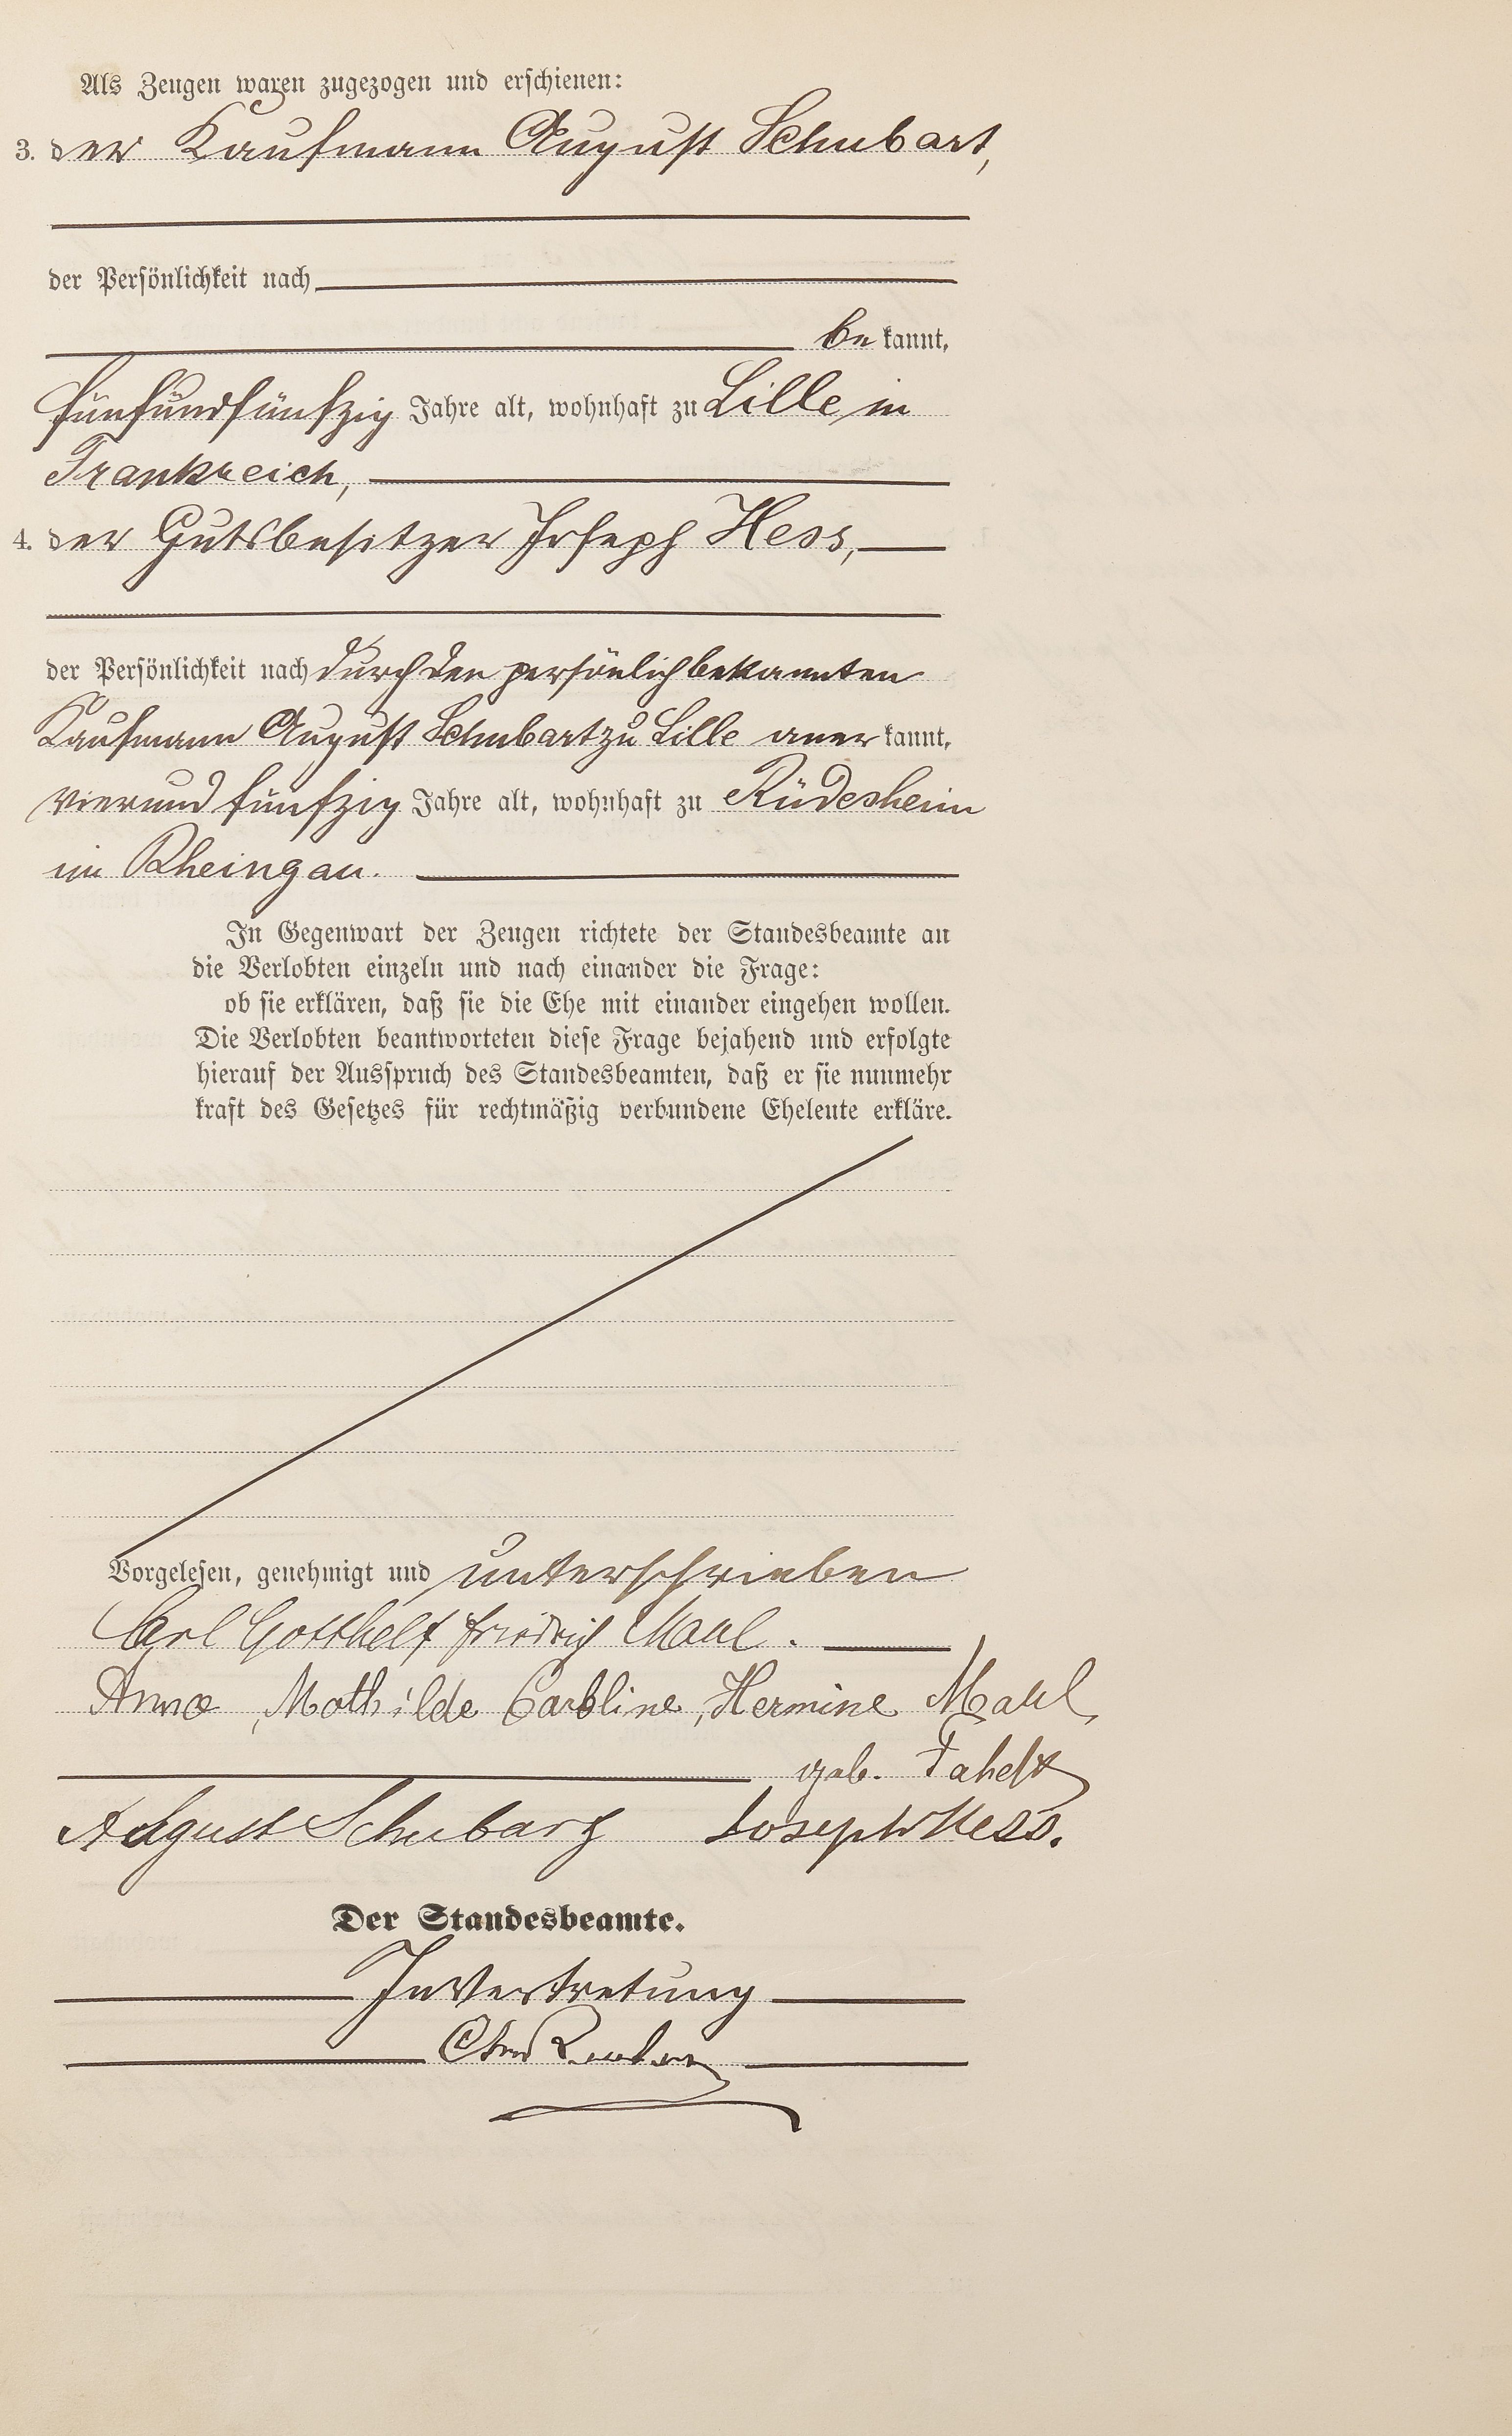 Als Zeugen waren zugezogen und erschienen:
3. der Kaufmann August Schubart,
der Persönlichkeit nach
be kannt,
fünfundfünfzig Jahre alt, wohnhaft zu Lille in
Frankreich,
4. der Gutsbesitzer Joseph Hess,
der Persönlichkeit nach durch den persönlich bekannten
Kaufmann August Schubart zu Lille aner kannt,
vierund fünfzig Jahre alt, wohnhaft zu Rüdesheim
im Rheingau.
In Gegenwart der Zeugen richtete der Standesbeamte an
die Verlobten einzeln und nach einander die Frage:
ob sie erklären, daß sie die Ehe mit einander eingehen wollen.
Die Verlobten beantworteten diese Frage bejahend und erfolgte
hierauf der Ausspruch des Standesbeamten, daß er sie nunmehr
kraft des Gesetzes für rechtmäßig verbundene Eheleute erkläre.
Vorgelesen, genehmigt und unterschrieben
Carl Gotthelf Friedrich Maul.
Anna, Mathilde Caroline, Hermine Maul,
geb. Fahdt
August Schubart Joseph Hess.
Der Standesbeamte.
In Vertretung